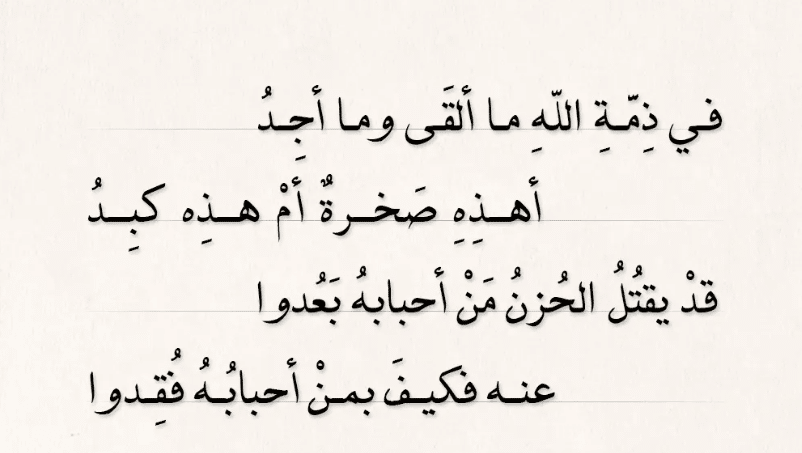 في ذِمّـةِ اللّهِ مـا ألقَـى ومـا أجِـدُ
أهـذِهِ صَخـرةٌ أمْ هـذِه كبِـدُ
قدْ يقتُلُ الحُزنُ مَنْ أحبابهُ بَعُدوا
عنـه فكيـفَ بمـنْ أحبابُـهُ فُقِـدوا